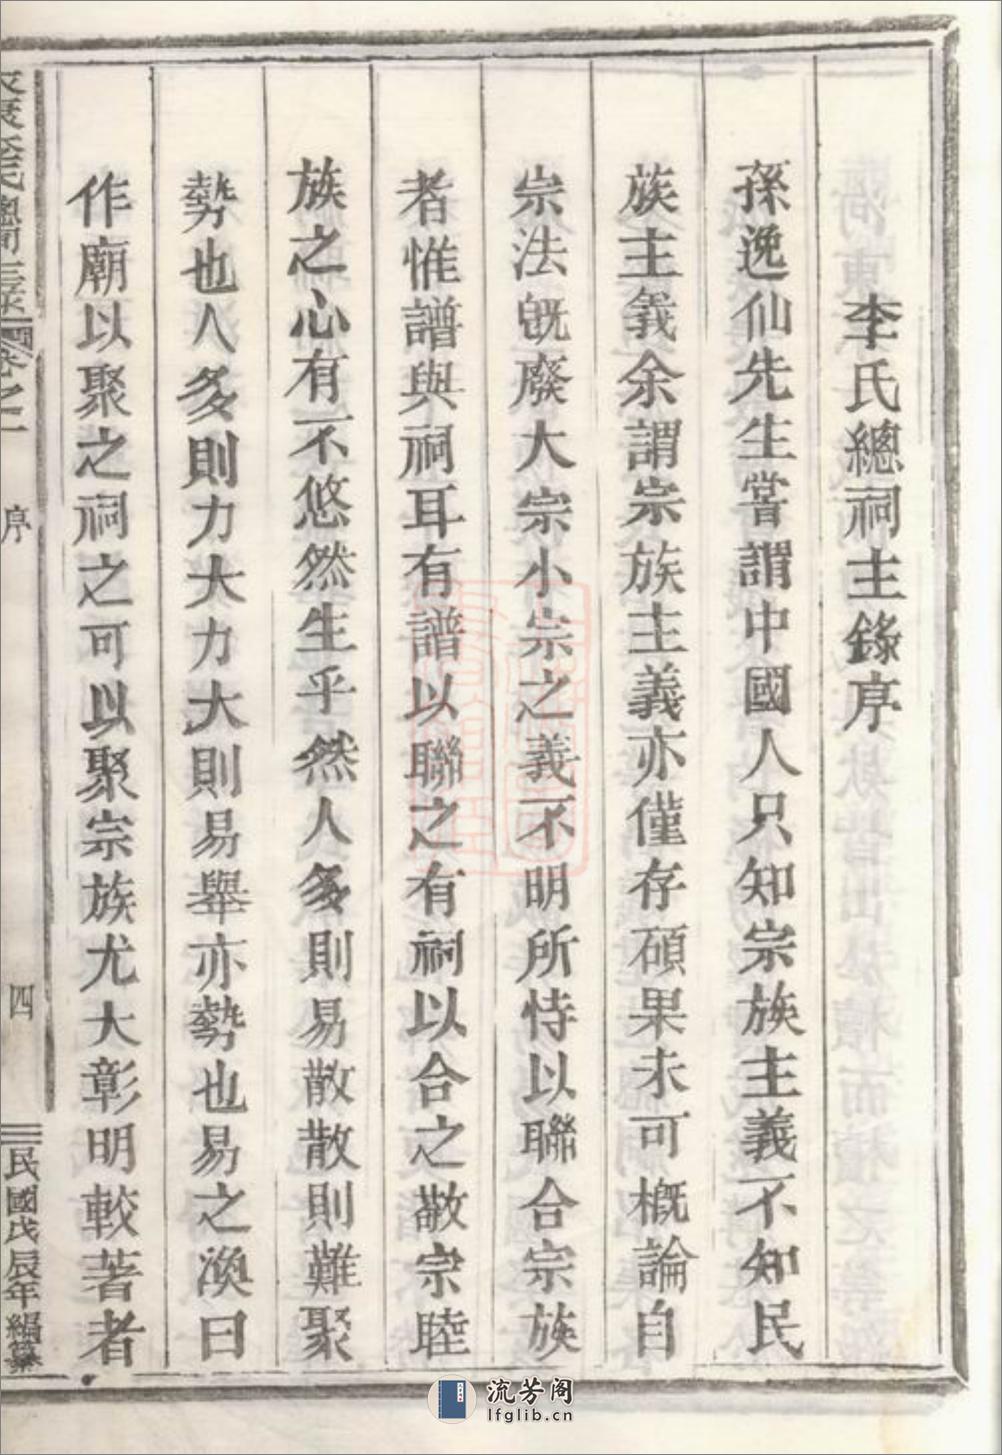 李氏總祠主錄序
孫逸仙先生嘗謂中國人只知宗族主義不知民
族主義余謂宗族主義亦僅存碩果未可概論自
宗法旣廢大宗小宗之義不明所恃以聯合宗族
者惟譜與祠耳有譜以聯之有祠以合之敬宗睦
族之心有不悠然生乎然人多則易散散則難聚
勢也人多則力大力大則易舉亦勢也易之渙曰
作廟以聚之祠之可以聚宗族尤大彰明較著者
卷之一
序
四
民國戊辰年編纂
流芳阁
lfglib.cn